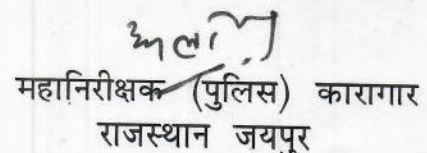 महानिरीक्षक (पुलिस) कारागार
राजस्थान जयपुर